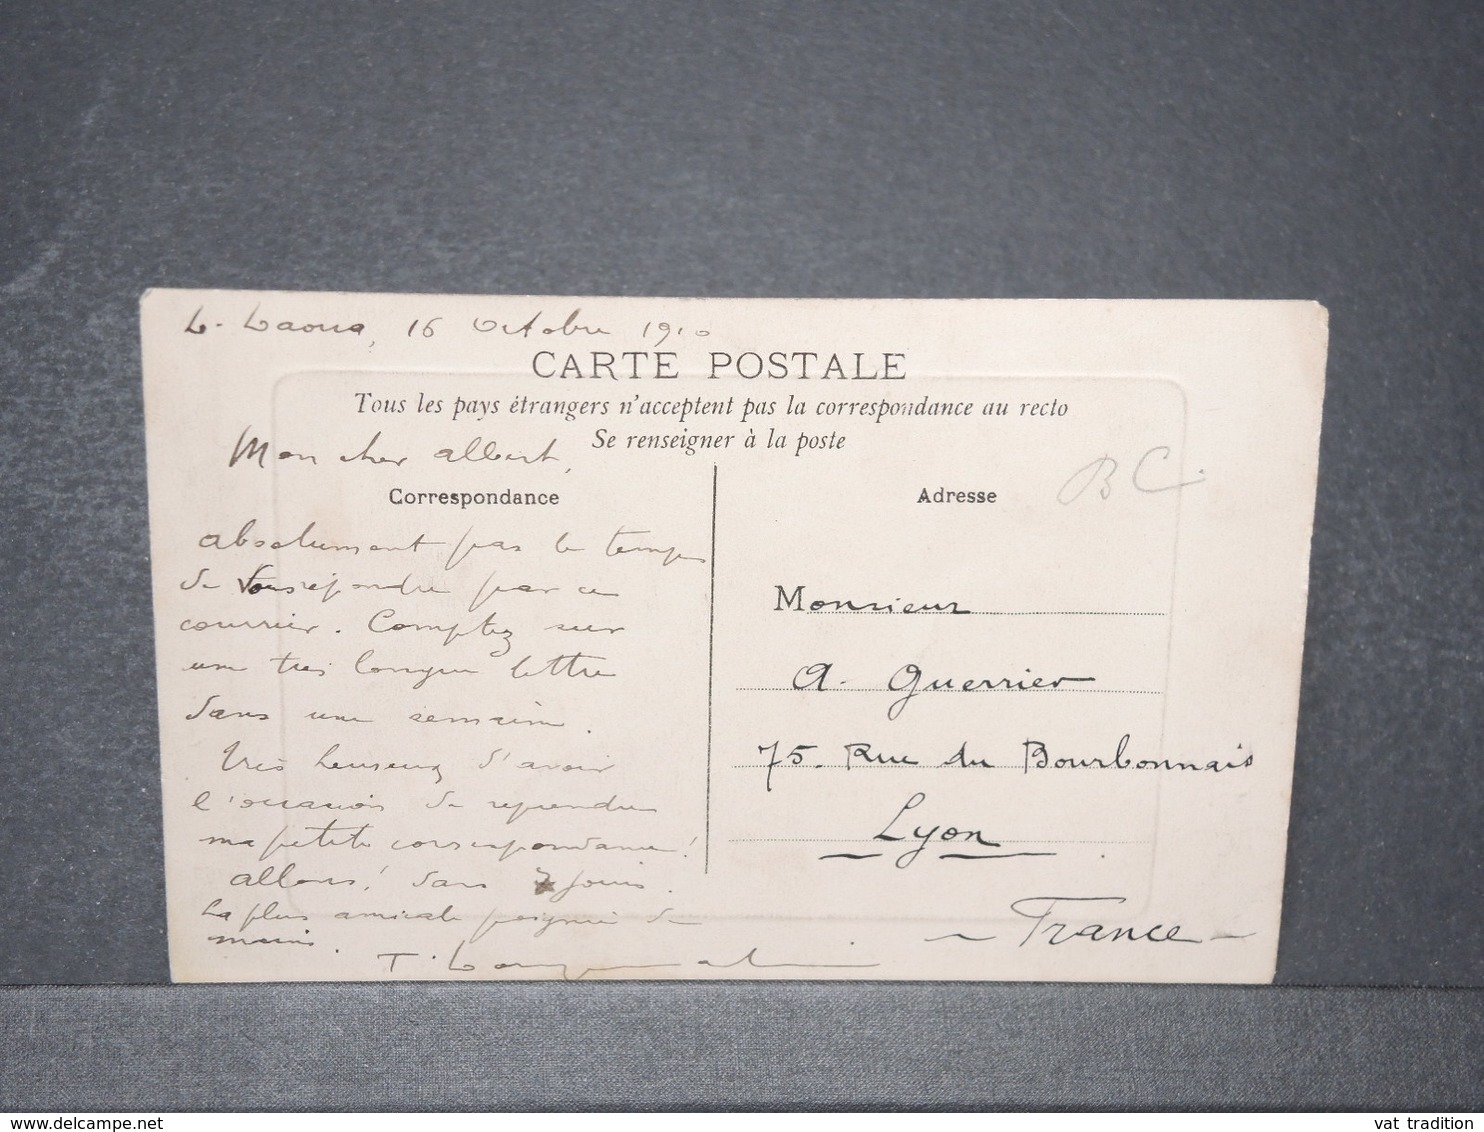 16 Octobre 1910
CARTE POSTALE
Tous les pays étrangers n'acceptent pas la correspondance au recto
Se renseigner à la poste
Mon cher Albert,
Correspondance
absolument pas le temps
de vous répondre par ce
courrier. Comptez sur
une très longue lettre
dans une semaine.
Très heureux d'avoir
l'occasion de reprendre
ma petite correspondance!
allons! dans 7 jours.
La plus amicale poignée de
mains.
T.
Adresse
BC.
Monsieur
A. Guerrier
75. Rue du Bourbonnais
Lyon
- France -
www.delcampe.net
vat tradition